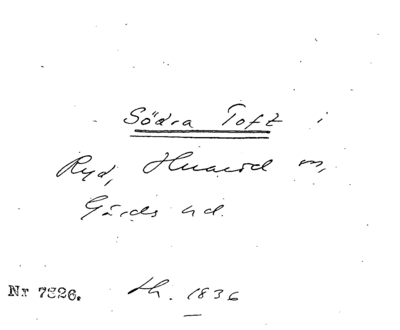 Södra Toft i
Ryd, Huaröd sn,
Gärds hd.
Nr 7826. th. 1836